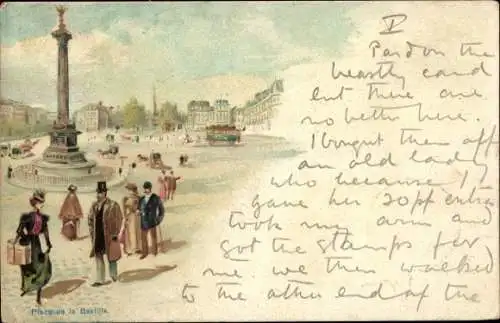 V
Pardon the
beastly card
but there are
no better here.
I bought them off
an old lady
who because I
gave her 20pf extra
took my arm and
got the stamps for
me we then walked
to the other end of the
Place de la Bastille